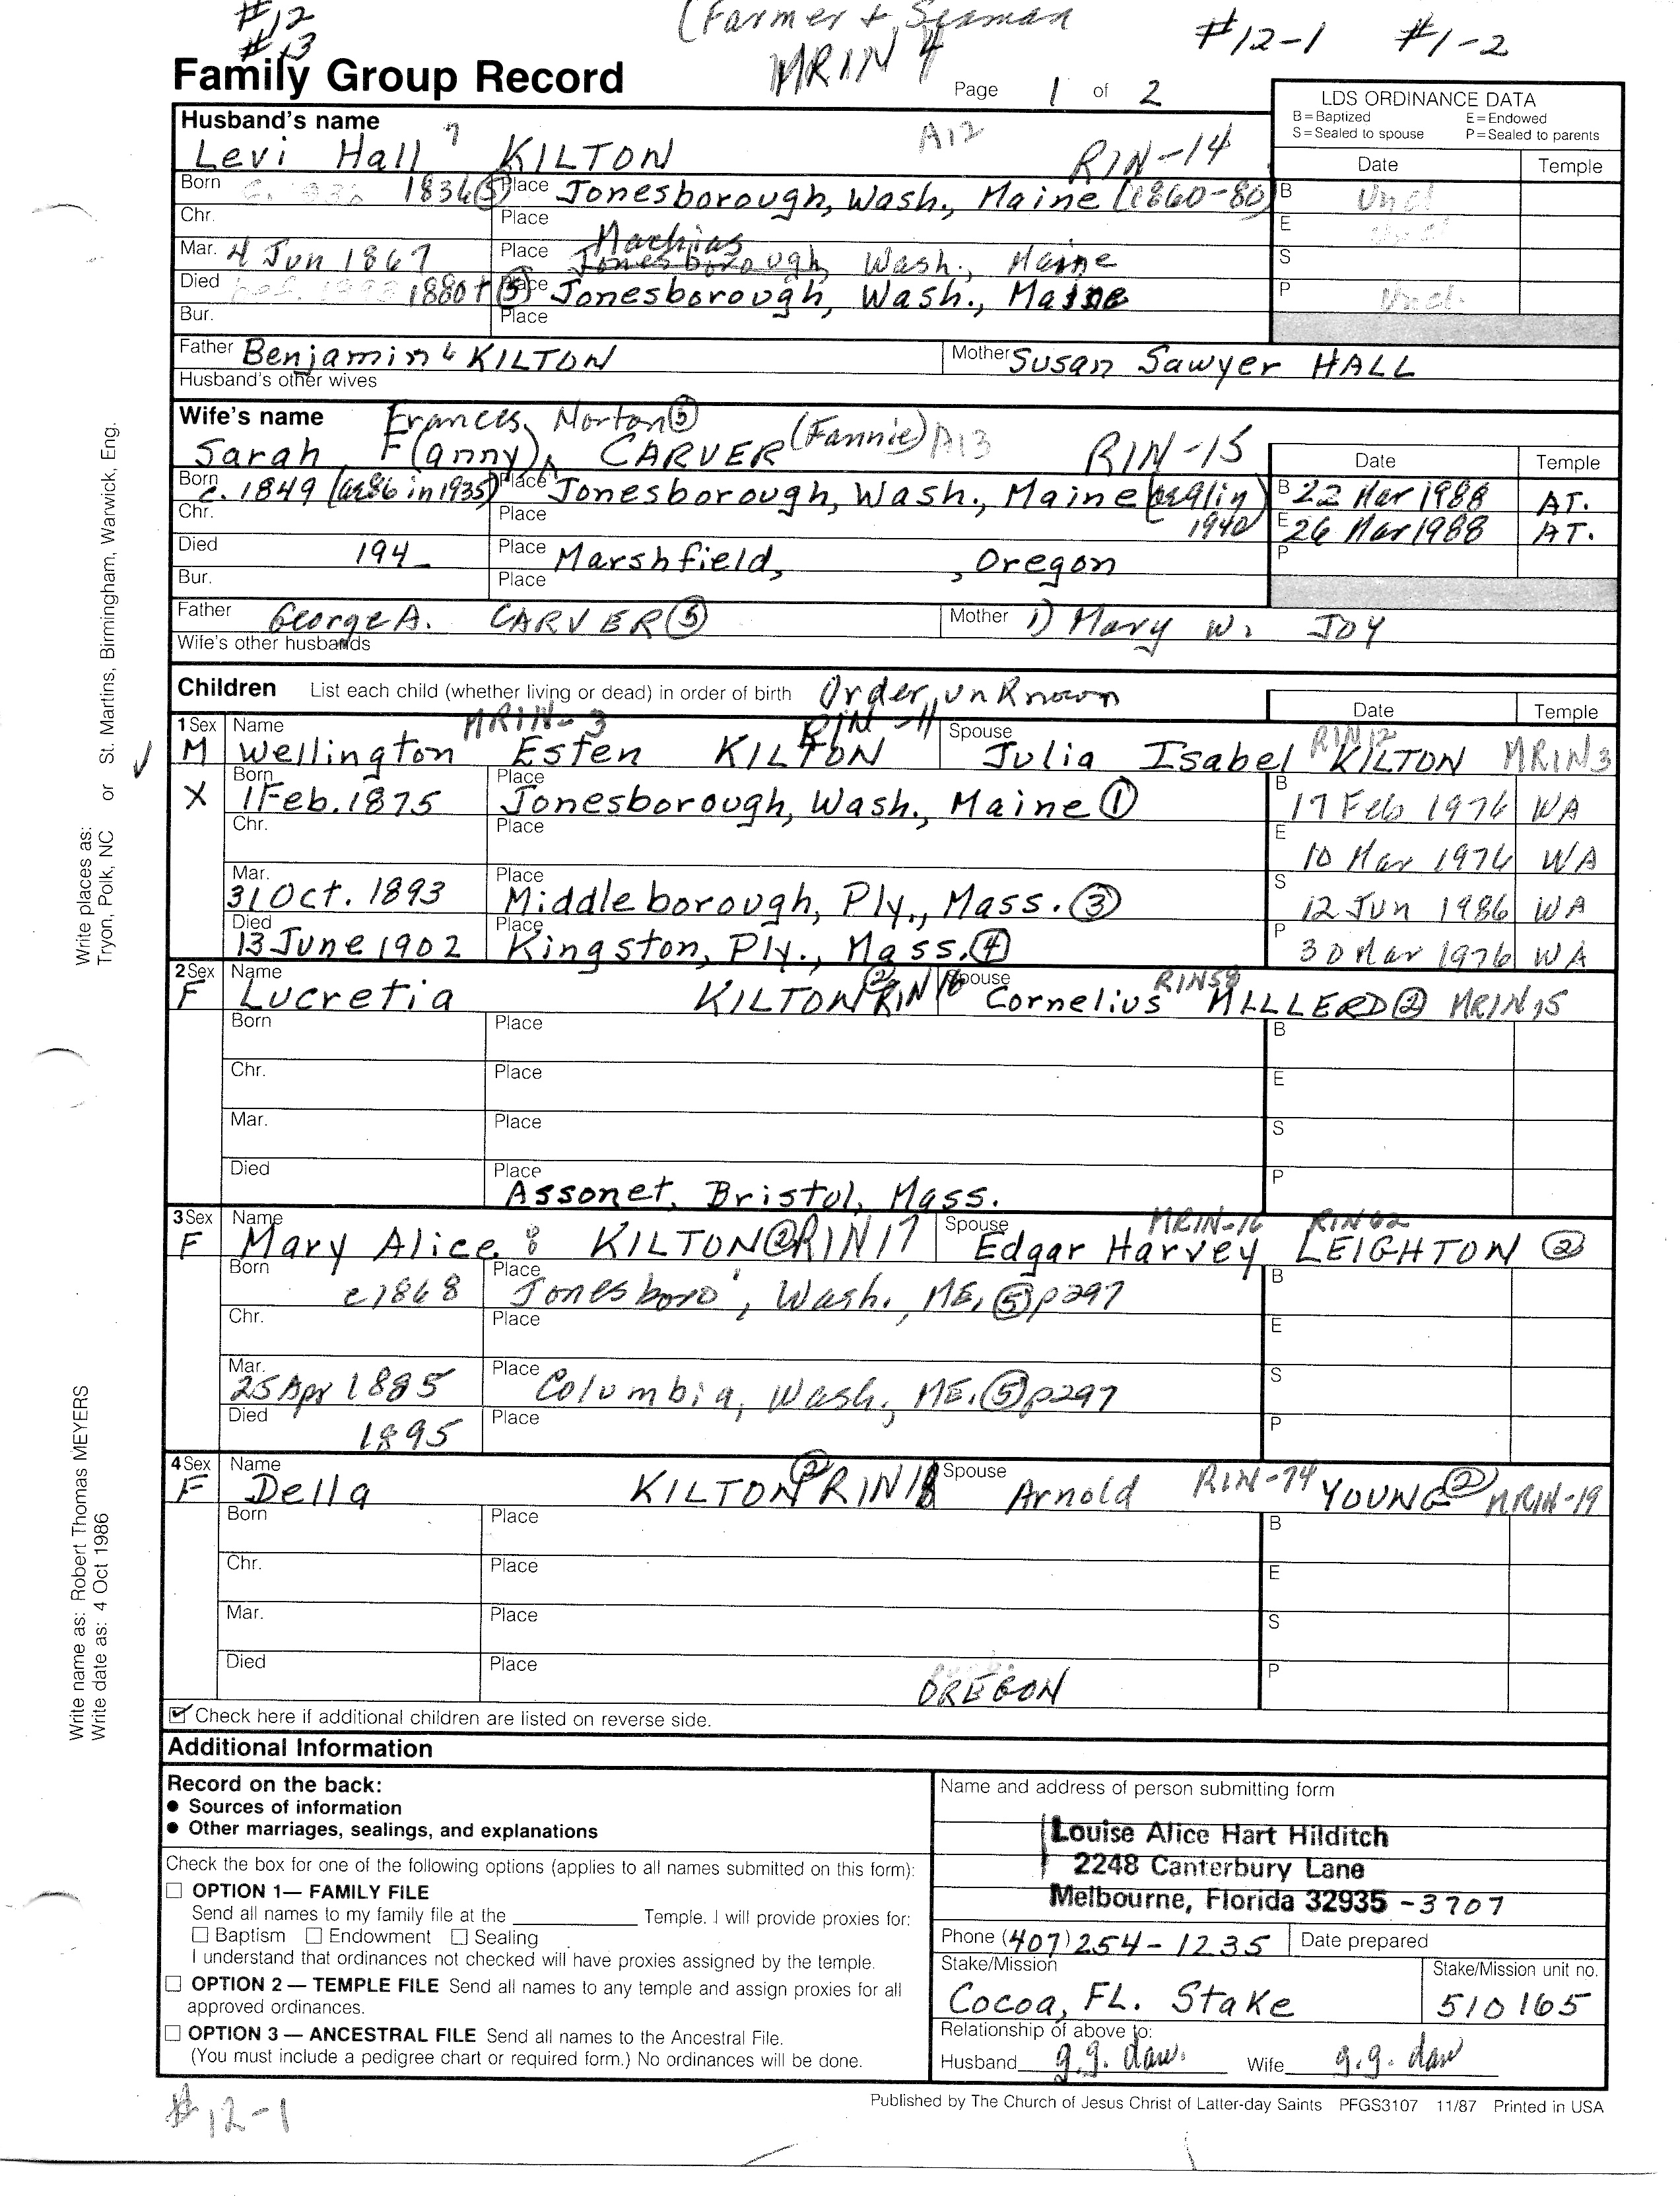 #12
(Farmer + Seaman
#13
MRIN 4
#12-1 #1-2
Family Group Record
Page 1 of 2
LDS ORDINANCE DATA
B=Baptized E=Endowed
S=Sealed to spouse P=Sealed to parents
Date Temple
Husband's name
A12
Levi Hall KILTON RIN-14
Born 1836 (5) Place Jonesborough, Wash., Maine (1860-80) B Uncl
Chr. Place E
Machias
Mar. 4 Jun 1867 Place Jonesborough, Wash., Maine S
Died 1880+ (5) Place Jonesborough, Wash., Maine P Uncl.
Bur. Place
Father Benjamin KILTON Mother Susan Sawyer HALL
Husband's other wives
Wife's name
Frances, Norton (5)
Sarah F(anny) CARVER (Fannie) A13 RIN-15
Date Temple
Born c. 1849 (ae86 in 1935) Place Jonesborough, Wash., Maine (ae91 in 1940) B 22 Mar 1988 AT.
Chr. Place E 26 Mar 1988 AT.
Died 194_ Place Marshfield, , Oregon P
Bur. Place
Father George A. CARVER (5) Mother 1) Mary W. JOY
Wife's other husbands
Children List each child (whether living or dead) in order of birth Order unKnown
Date Temple
1 Sex Name MRIN-3 RIN-11 Spouse RIN12
M Wellington Esten KILTON Julia Isabel KILTON MRIN3
X Born 1 Feb. 1875 Place Jonesborough, Wash., Maine (1) B 17 Feb 1976 WA
Chr. Place E 10 Mar 1976 WA
Mar. 31 Oct. 1893 Place Middleborough, Ply., Mass. (3) S 12 Jun 1986 WA
Died 13 June 1902 Place Kingston, Ply., Mass. (4) P 30 Mar 1976 WA
2 Sex Name Spouse
F Lucretia KILTON (2) Cornelius HLLLERD (2) MRIN 15
Born Place B
Chr. Place E
Mar. Place S
Died Place Assonet, Bristol, Mass. P
3 Sex Name Spouse MRIN-16 RIN62
F Mary Alice KILTON (2) RIN17 Edgar Harvey LEIGHTON (2)
Born c1868 Place Jonesboro', Wash., ME, (5) p297 B
Chr. Place E
Mar. 25 Apr 1885 Place Columbia, Wash., ME. (5) p297 S
Died 1895 Place P
4 Sex Name Spouse
F Della KILTON (2) RIN18 Arnold RIN-74 YOUNG (2) MRIN-19
Born Place B
Chr. Place E
Mar. Place S
Died Place OREGON P
Check here if additional children are listed on reverse side.
Additional Information
Record on the back:
● Sources of information
● Other marriages, sealings, and explanations
Check the box for one of the following options (applies to all names submitted on this form):
OPTION 1— FAMILY FILE
Send all names to my family file at the ____________ Temple. I will provide proxies for:
Baptism Endowment Sealing
I understand that ordinances not checked will have proxies assigned by the temple.
OPTION 2 — TEMPLE FILE Send all names to any temple and assign proxies for all
approved ordinances.
OPTION 3 — ANCESTRAL FILE Send all names to the Ancestral File.
(You must include a pedigree chart or required form.) No ordinances will be done.
Name and address of person submitting form
Louise Alice Hart Hilditch
2248 Canterbury Lane
Melbourne, Florida 32935 -3707
Phone (407) 254-1235 Date prepared
Stake/Mission Stake/Mission unit no.
Cocoa, FL. Stake 510165
Relationship of above to:
Husband g.g. dau. Wife g.g. dau
Published by The Church of Jesus Christ of Latter-day Saints PFGS3107 11/87 Printed in USA
#12-1
Write places as: St. Martins, Birmingham, Warwick, Eng.
Tryon, Polk, NC or
Write name as: Robert Thomas MEYERS
Write date as: 4 Oct 1986